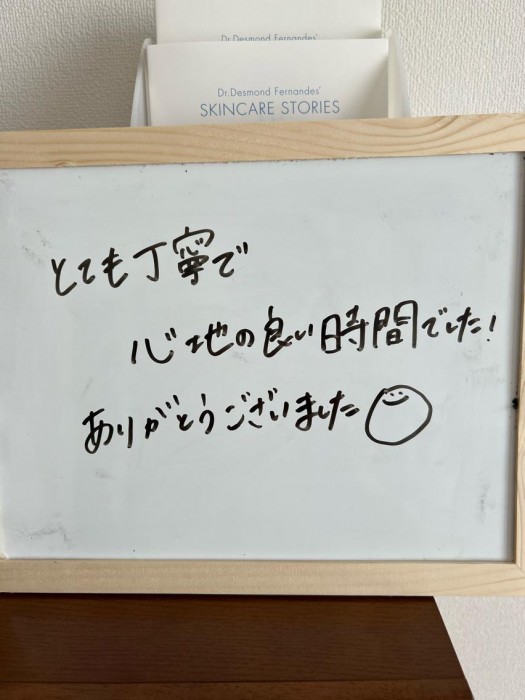 Dr.Desmond Fernandes'
Dr.Desmond Fernandes'
SKINCARE STORIES
とても丁寧で
心地の良い時間でした!
ありがとうございました